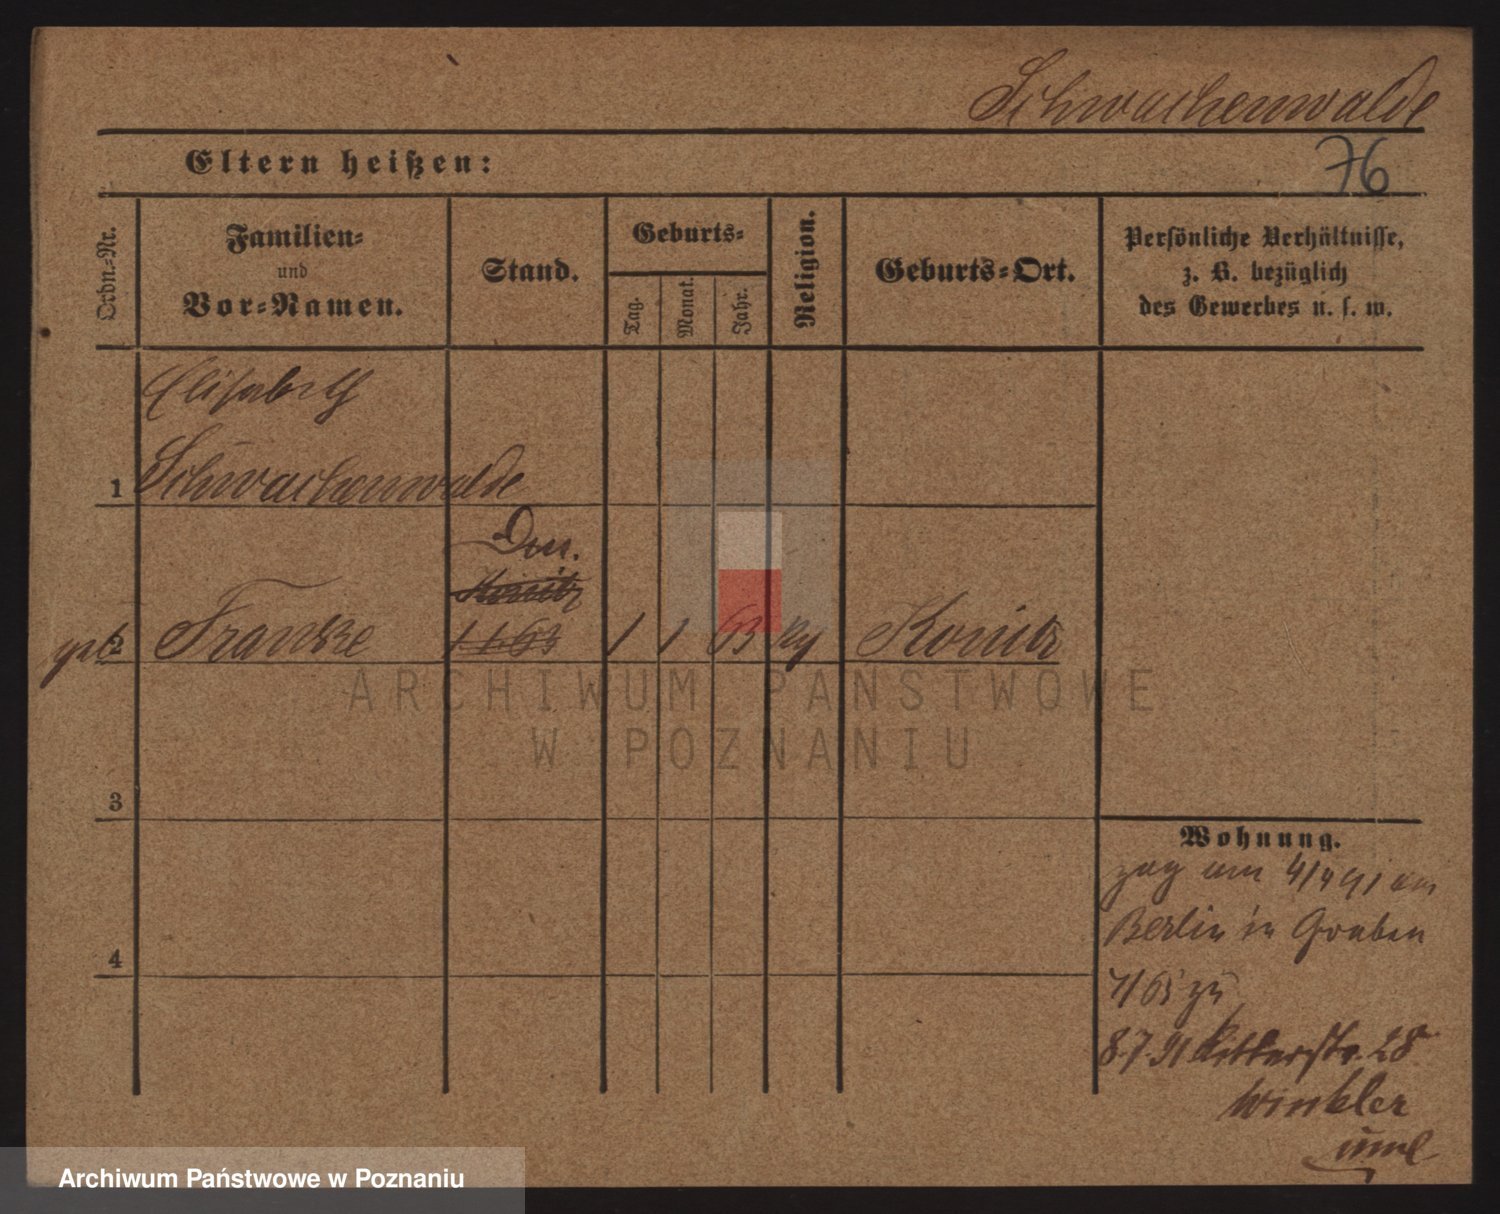 Schwachenwalde
Eltern heißen:
76
Ordn.-Nr.
Familien-
und
Vor-Namen.
Stand.
Geburts-
Tag.
Monat.
Jahr.
Religion.
Geburts-Ort.
Persönliche Verhältnisse,
z. B. bezüglich
des Gewerbes u. s. w.
Elisabeth
1 Schwachenwalde
Konitz
geb 2 Franke 1 1 63 1 1 63 Konitz
3
4
Wohnung.
zog am 4/4 91
Berlin in Graben
zu
8.7.91 Ritterstr. 28
Winkler
ARCHIWUM PAŃSTWOWE
W POZNANIU
Archiwum Państwowe w Poznaniu